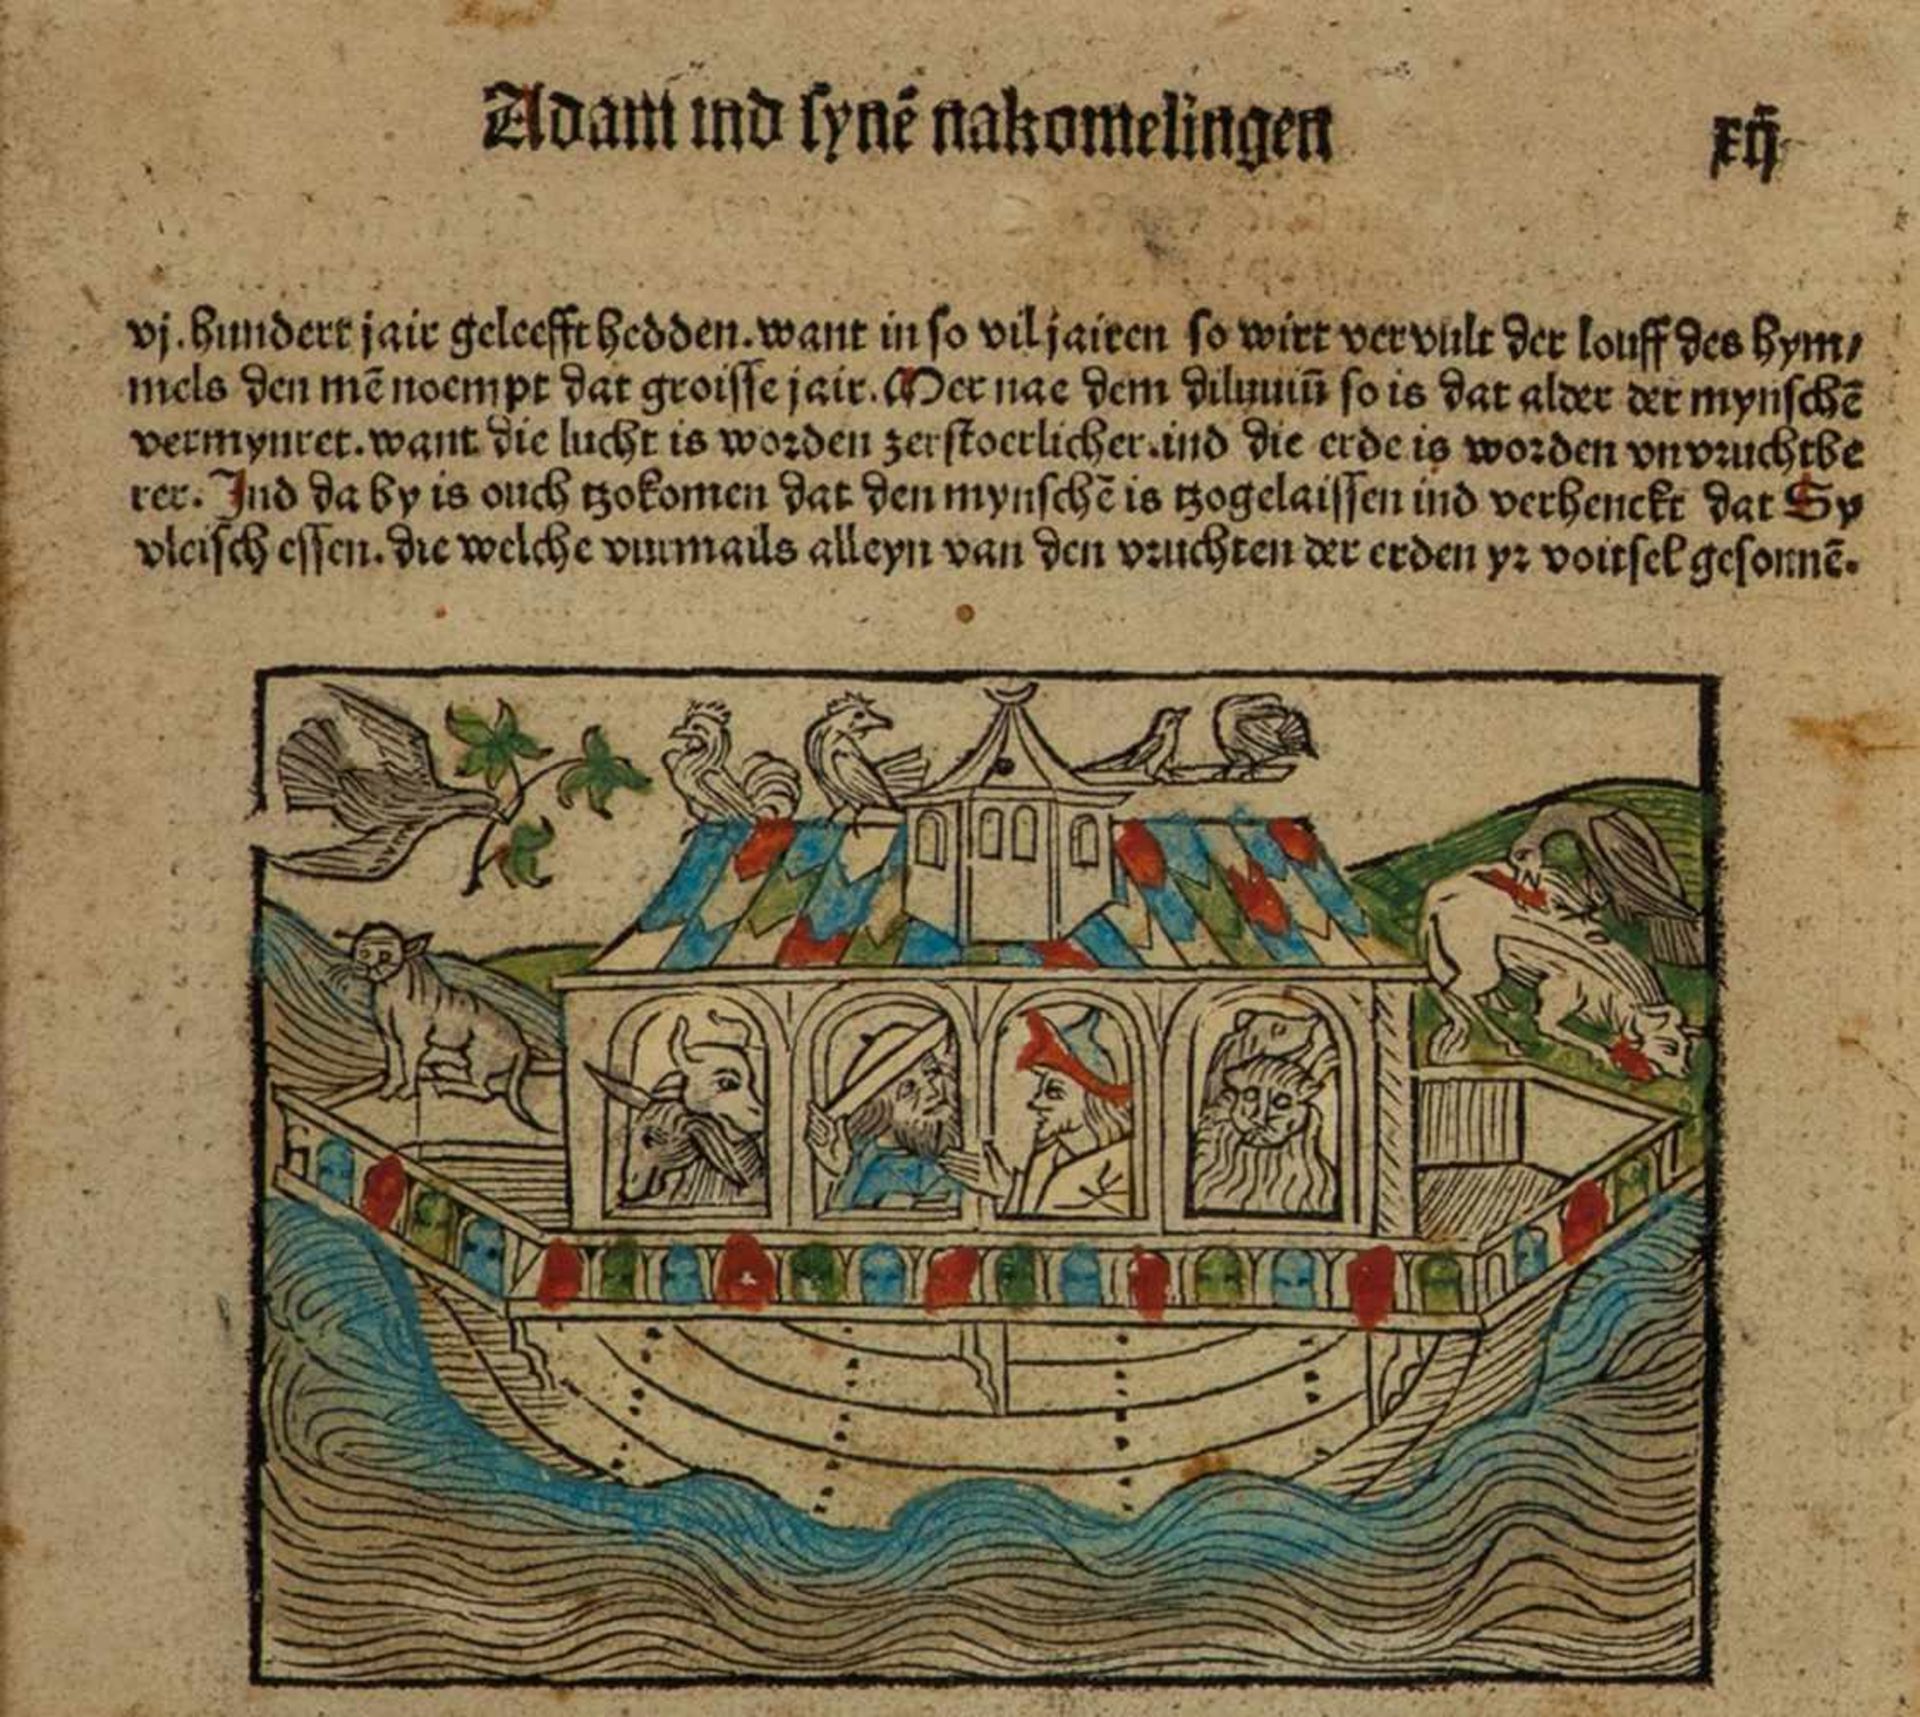 Adam ind synē nakomelingen xij
vj. hundert jair geleefft hedden. want in so vil jairen so wirt vervult der louff des hym/
mels den mē noempt dat groisse jair. Mer nae dem diluuiū so is dat alder der mynschē
vermynret. want die lucht is worden zerstoerlicher. ind die erde is worden vnvruchtbe
rer. Ind da by is ouch tzokomen dat den mynschē is tzogelaissen ind verhenckt dat Sy
vleisch essen. die welche vurmails alleyn van den vruchten der erden yr voitsel gesonnē.